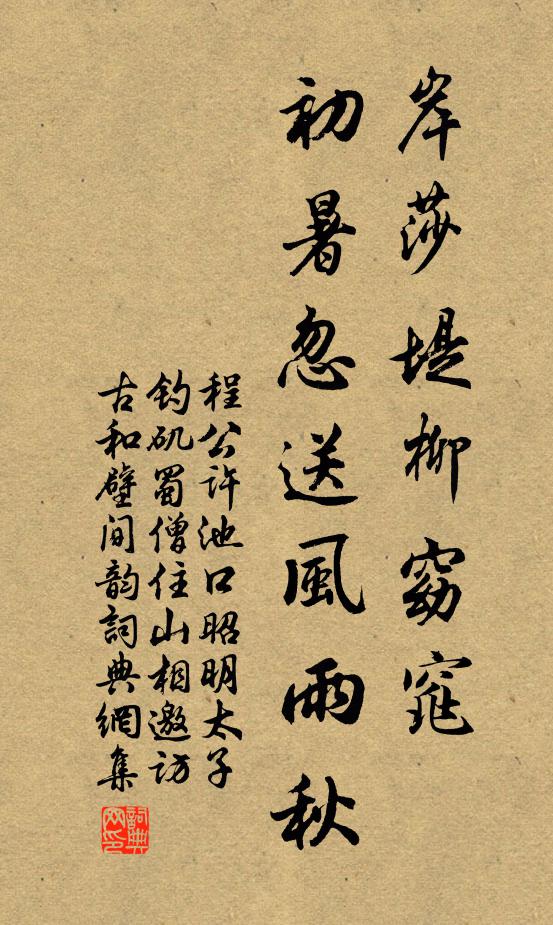 岸莎堤柳窈窕
初暑忽送風雨秋
程公许池口昭明太子
钓矶蜀僧住山相邀访
古和壁间韵詞典網集
詞典
网印